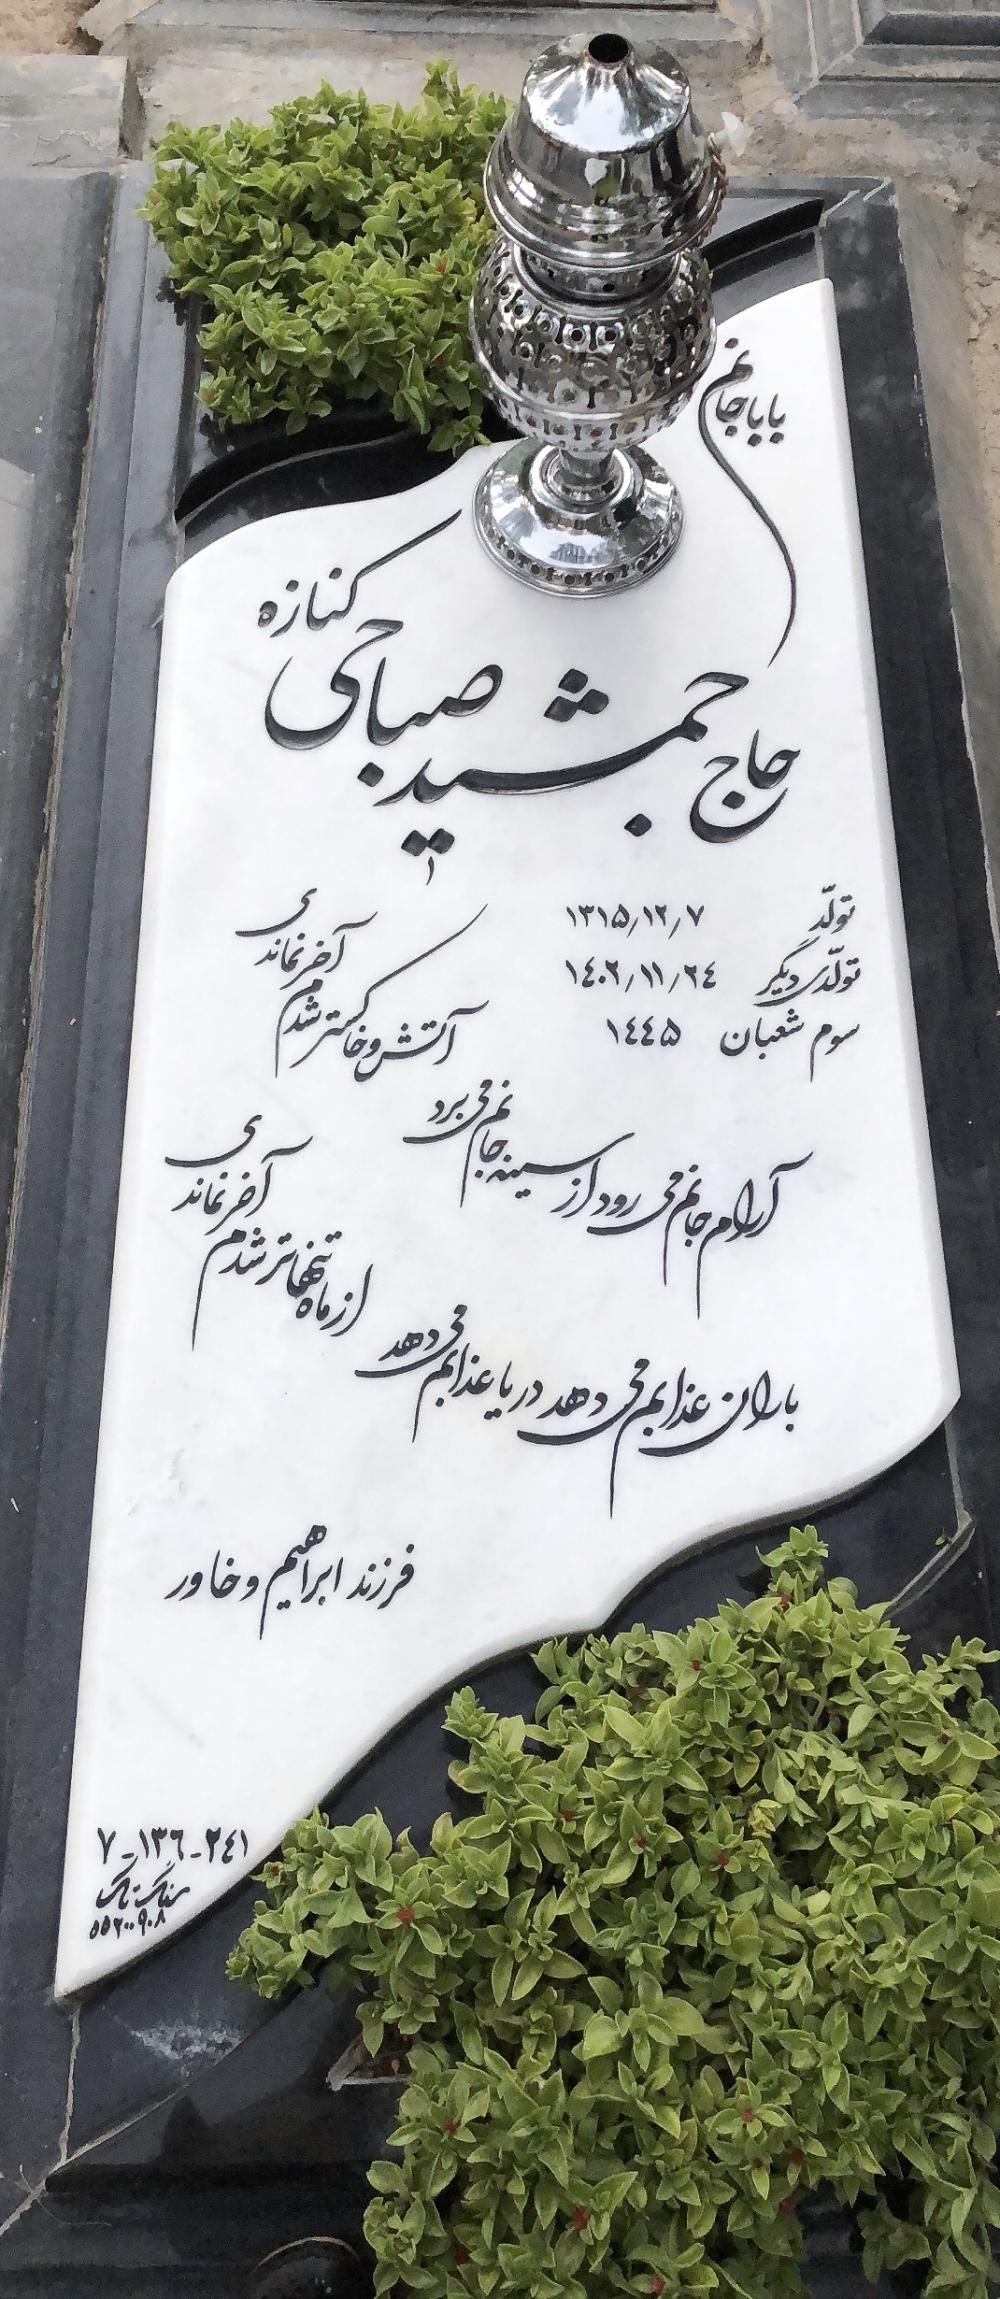 باباجانم
حاج جمشید صباحی کنازه
تولّد ۱۳۱۵/۱۲/۷
تولّدی دیگر ۱۴۰۲/۱۱/۲۴
سوم شعبان ۱۴۴۵
آتش و خاکستر شدم آخر نماندی
آرام جانم می رود از سینه جانم می برد
از ماه تنهاتر شدم آخر نماندی
باران عذابم می دهد دریا عذابم می دهد
فرزند ابراهیم و خاور
۲۴۱-۱۳۶-۷
سنگ تاک
۵۵۲۰۰۹۰۸